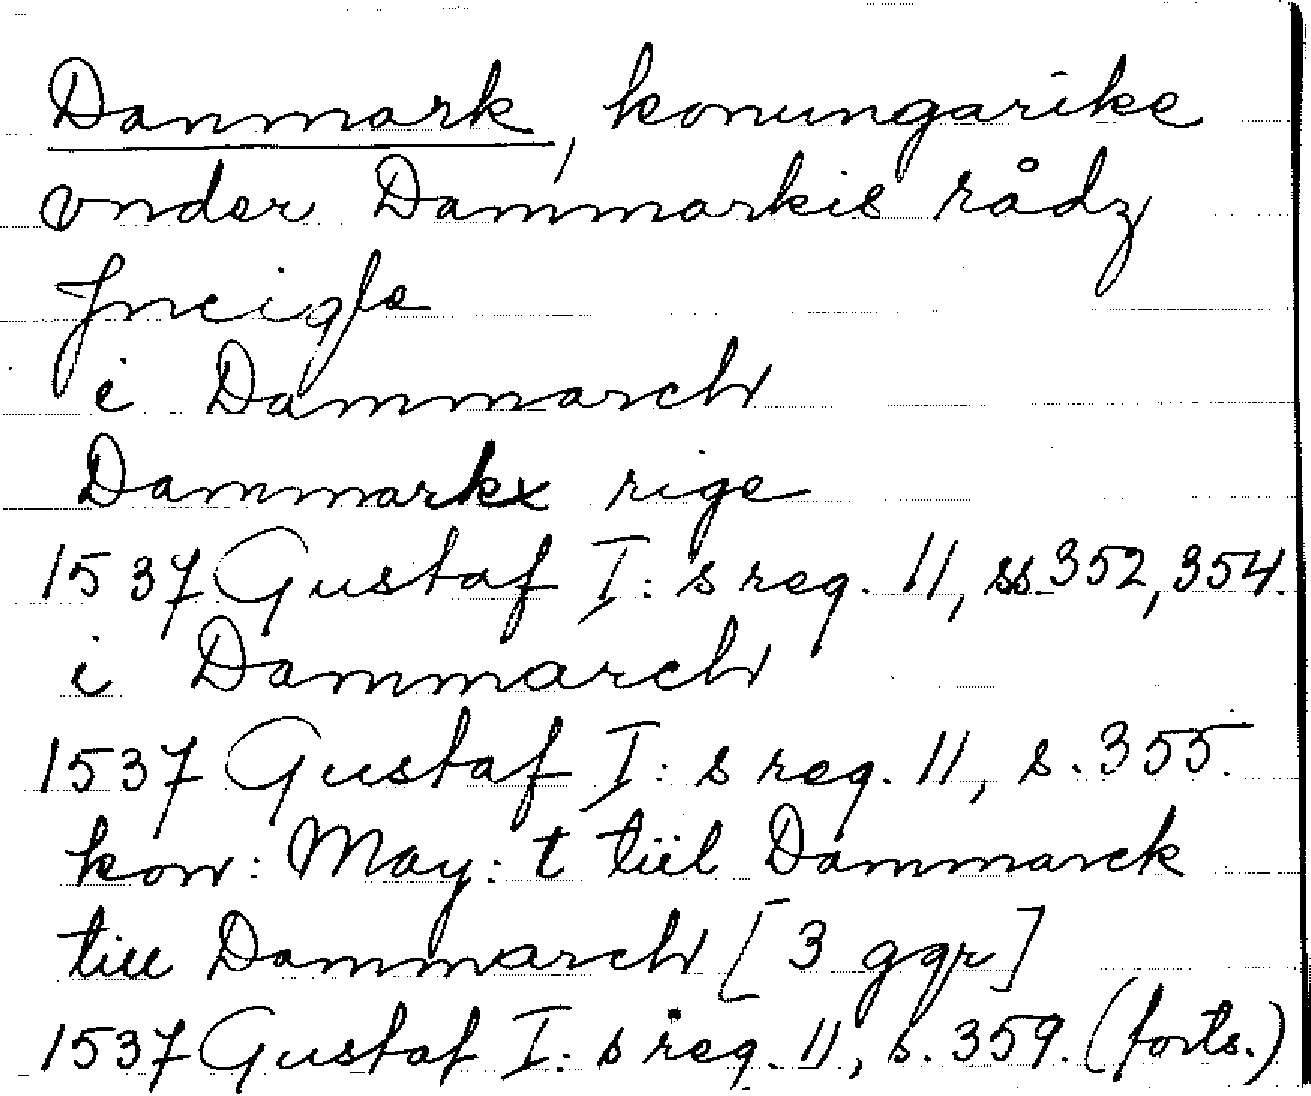 Danmark, konungarike
vnder Dammarkis rådz
Jncigle
i Dammarch
Dammarkx rige
1537 Gustaf I:s reg. 11, ss. 352, 354.
i Dammarch
1537 Gustaf I:s reg. 11, s. 355.
kon: May:t tiil Dammarck
till Dammarch [3 ggr]
1537 Gustaf I:s reg. 11, s. 359. (forts.)